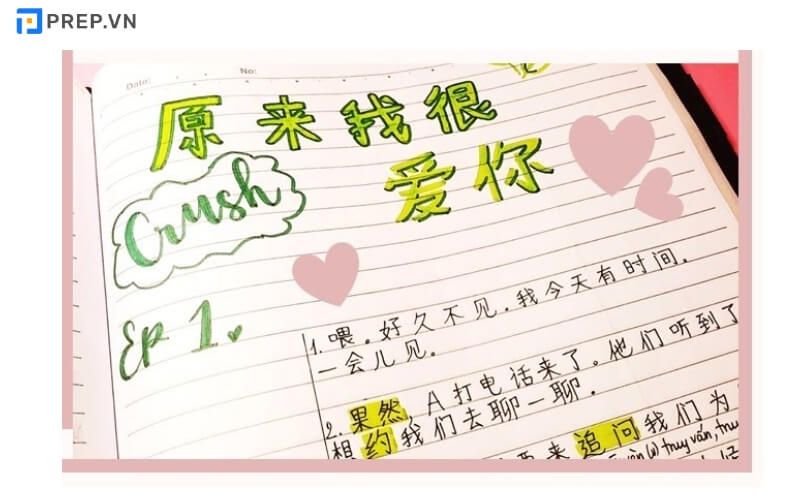 PREP.VN
Date: No:
原来我很
爱你
Crush
EP 1.
1. 喂。好久不见. 我今天有时间.
一会儿见.
2. 果然, A打电话来了。他们听到了
相约我们去聊一聊.
来追问我们为
(v) truy vấn, truy